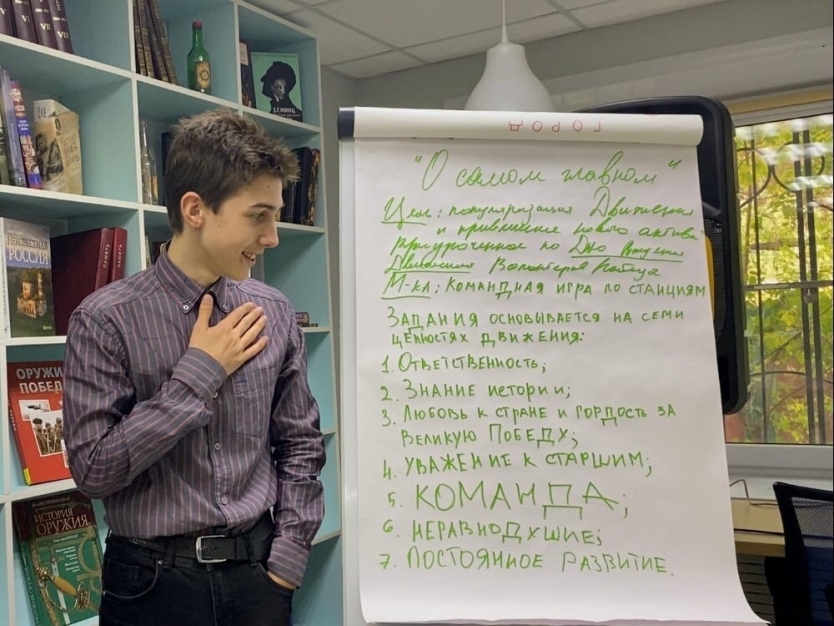 V
VI
VII
VIII
З.Г.МИНЦ
НЕИЗВЕСТНАЯ
РОССИЯ
ПАМЯТЬ
ПАМЯТЬ
ОРУЖИЕ
ПОБЕДЫ
ИСТОРИЯ
ОРУЖИЯ
ГОРОД
"О самом главном"
Цель: популяризация Движения
и привлечение нового актива
приуроченное ко Дню рождения
Движения Волонтёров Победы
М-кл: КОМАНДНАЯ ИГРА ПО СТАНЦИЯМ
ЗАДАНИЯ ОСНОВЫВАЕТСЯ НА СЕМИ
ЦЕННОСТЯХ ДВИЖЕНИЯ:
1. ОТВЕТСТВЕННОСТЬ;
2. ЗНАНИЕ ИСТОРИИ;
3. ЛЮБОВЬ К СТРАНЕ И ГОРДОСТЬ ЗА
ВЕЛИКУЮ ПОБЕДУ;
4. УВАЖЕНИЕ К СТАРШИМ;
5. КОМАНДА;
6. НЕРАВНОДУШИЕ;
7. ПОСТОЯННОЕ РАЗВИТИЕ.